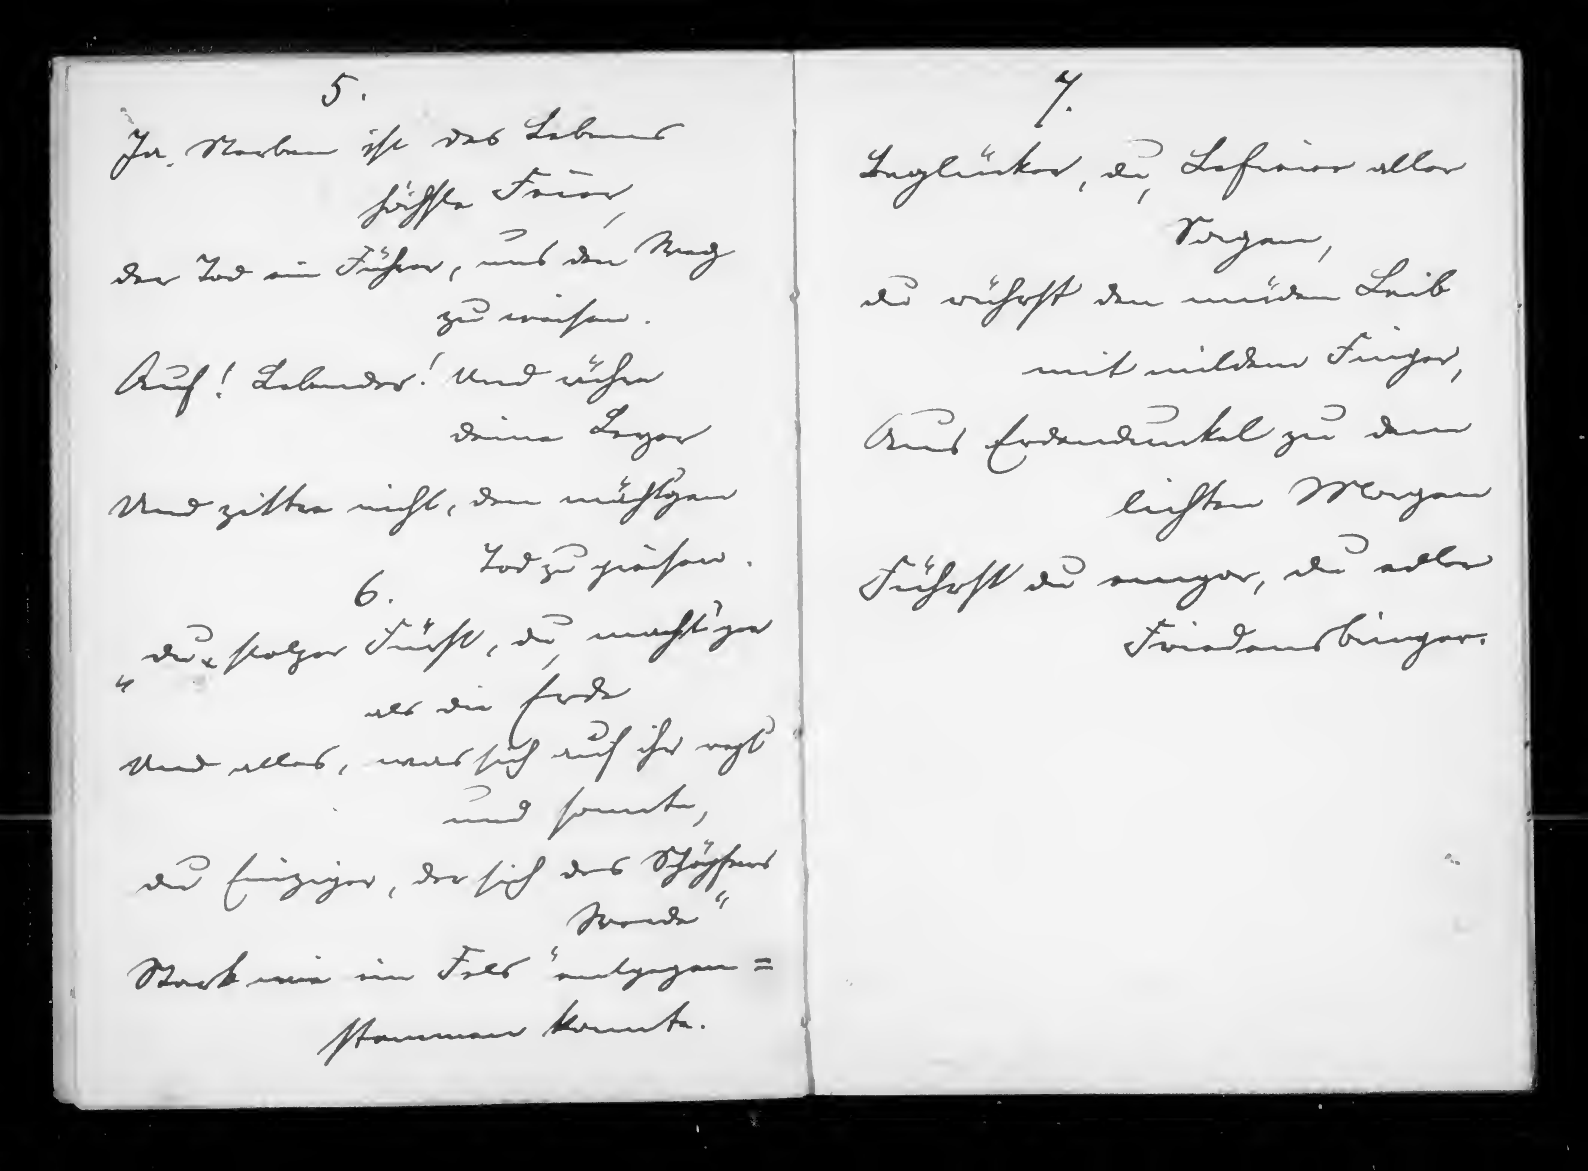 5.
Ja, Sterben ist des Lebens
höchste Feier,
der Tod ein Führer, uns den Weg
zu weisen.
Auf! Lebender! Und rühre
deine Leyer
Und zittre nicht, den mächt'gen
Tod zu preisen.
6.
"du, stolzer Fürst, du, mächt'ger
als die Erde
Und alles, was sich auf ihr regt
und sonnte,
du Einziger, der sich des Schöpfers
Werde"
Stark wie ein Fels "entgegen=
stemmen konnte.
7.
Beglücker, du, Befreier aller
Sorgen,
du rührst den müden Leib
mit mildem Finger,
Aus Erdendunkel zu dem
lichten Morgen
Führst du empor, du edler
Friedensbringer.